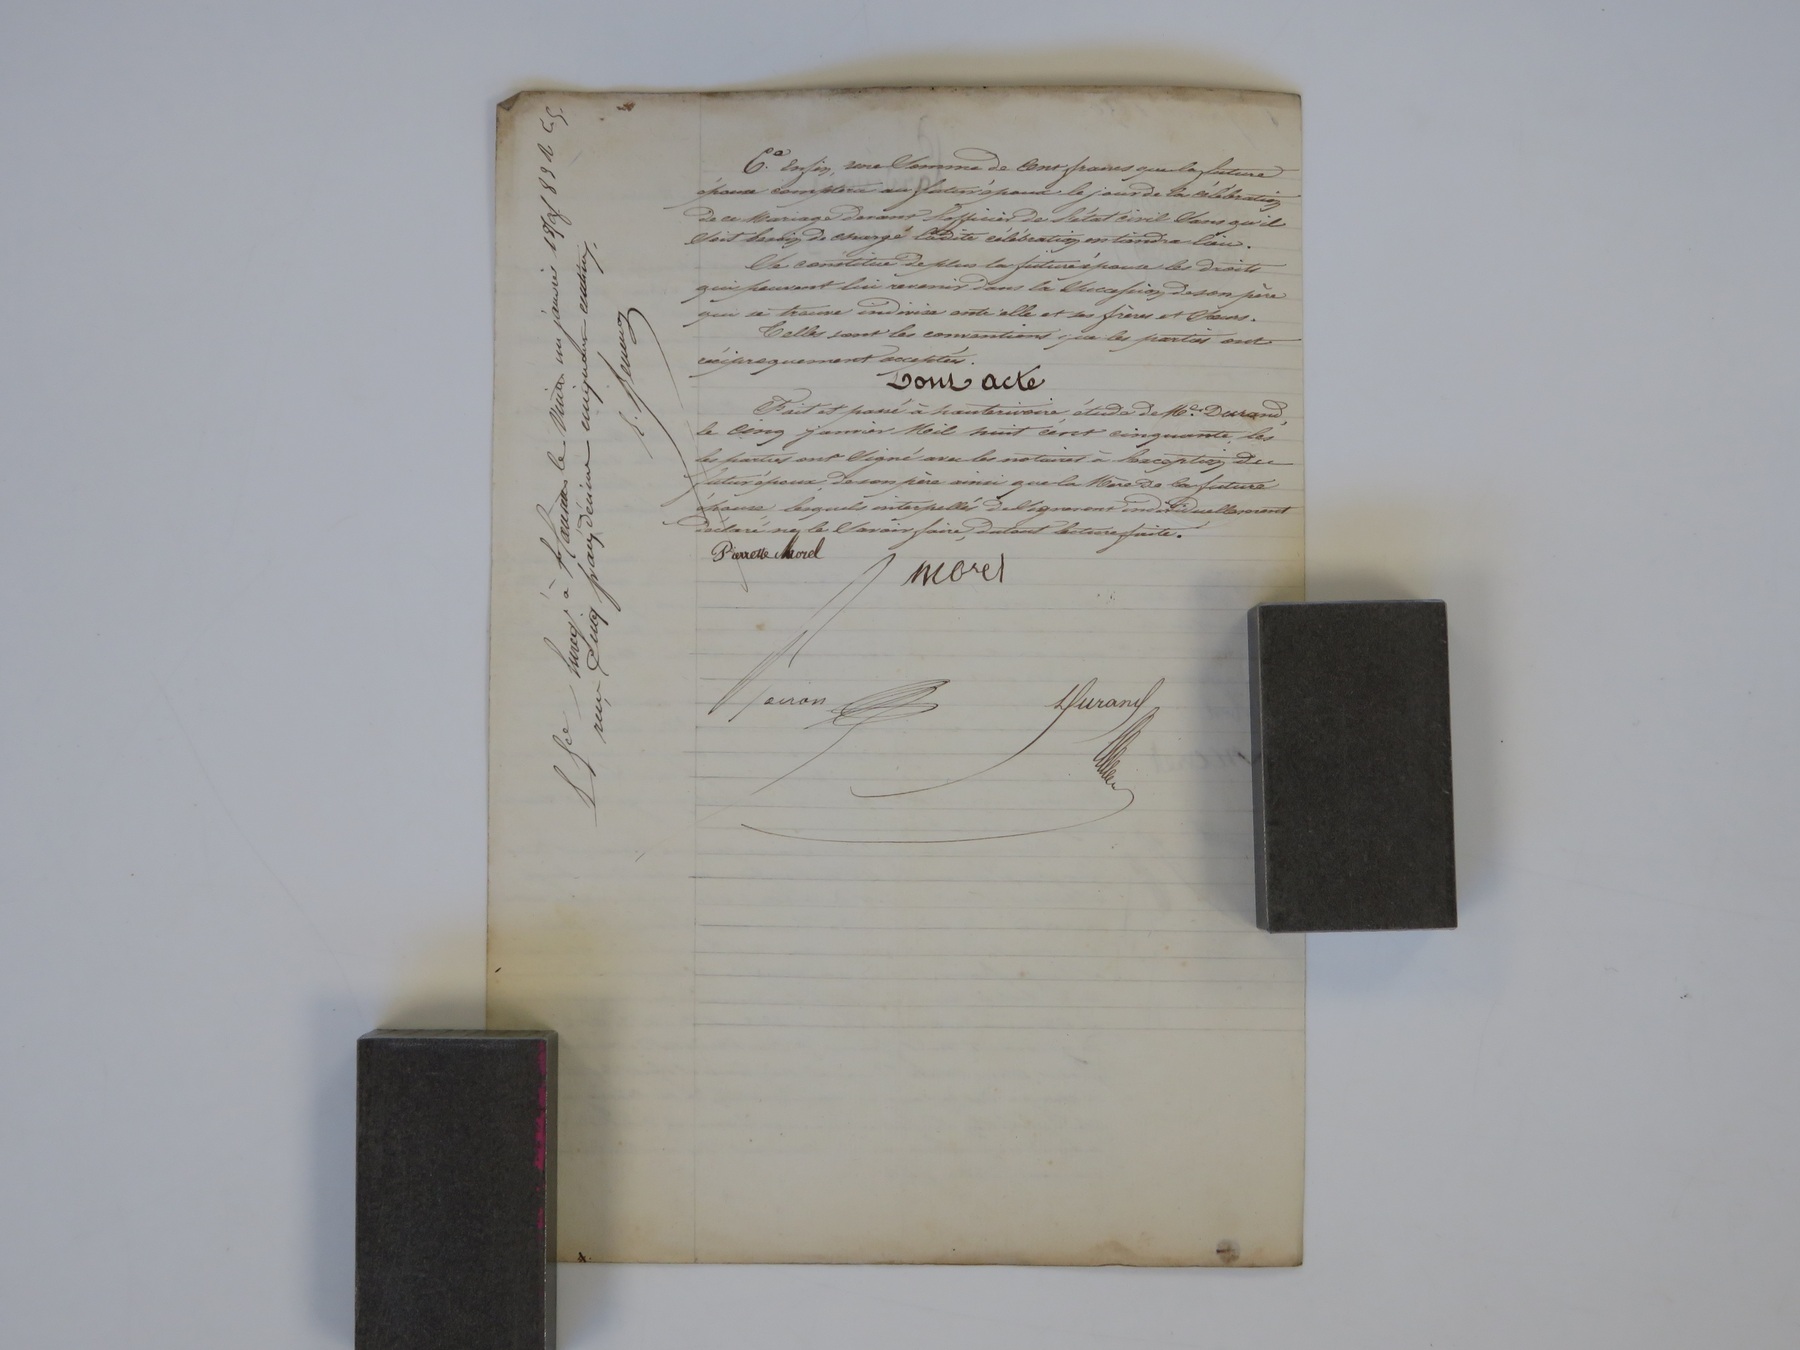 6.° Enfin, une Somme de Cent francs que la future
épouse comptera au futur époux le jour de la célébration
de ce Mariage devant l'officier de l'état Civil Sans qu'il
Soit besoin de charge ladite célébration en tiendra lieu.
Se constitue de plus la future épouse les droits
qui peuvent lui revenir dans la Succession de son père
qui se trouve indivise entre elle et ses frères et Sœurs.
Telles sont les conventions que les parties ont
réciproquement acceptés.
Dont acte
Fait et passé à hauterivoire, étude de Me. Durand,
le Cinq janvier Mil huit cent cinquante, les
les parties ont Signé avec les notaires à l'exception du
futur époux, de son père ainsi que la Mère de la future
épouse lesquels interpellés de Signer ont individuellement
déclaré ne le Savoir faire, du tout lecture faite.
Pierrette Morel
Morel
Durand
Enreg. à le janvier
reçu Cinq francs, décime cinquante centimes.